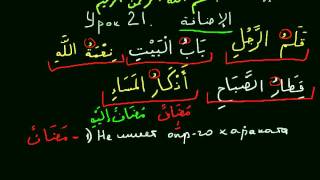 بسم الله الرحمن الرحيم
Урок 21. الإِضَافَةُ
قَلَمُ الرَّجُلِ بَابُ الْبَيْتِ نِعْمَةُ اللَّهِ
قِطَارُ الصَّبَاحِ أَذْكَارُ المَسَاءِ
مُضَافٌ مُضَافٌ إِلَيْهِ
مُضَافٌ - 1) Не имеет опр-го харакята